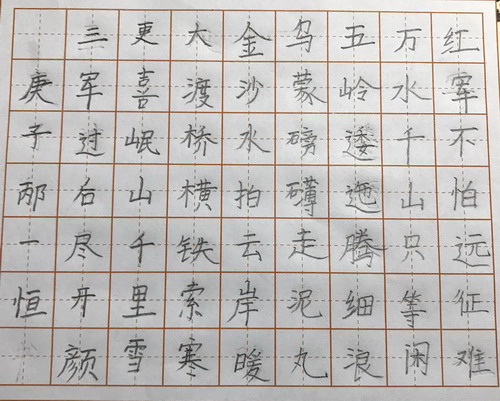 红军不怕远征难
万水千山只等闲
五岭逶迤腾细浪
乌蒙磅礴走泥丸
金沙水拍云岸暖
大渡桥横铁索寒
更喜岷山千里雪
三军过后尽开颜
庚子邴一恒